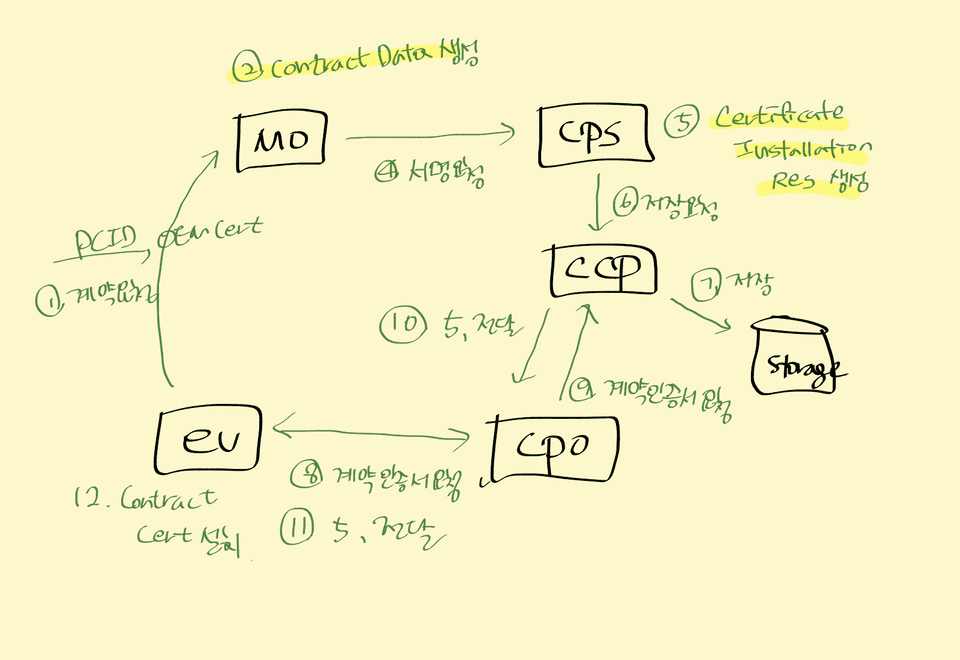 ② Contract Data 생성
MO
CPS
⑤ Certificate
Installation
Res 생성
④ 서명요청
⑥ 저장요청
PCID, OEM Cert
① 계약요청
CCP
⑦ 저장
Storage
⑩ 5, 전달
⑨ 계약인증서요청
EV
CPO
⑧ 계약인증서요청
⑪ 5, 전달
12. Contract
Cert 설치